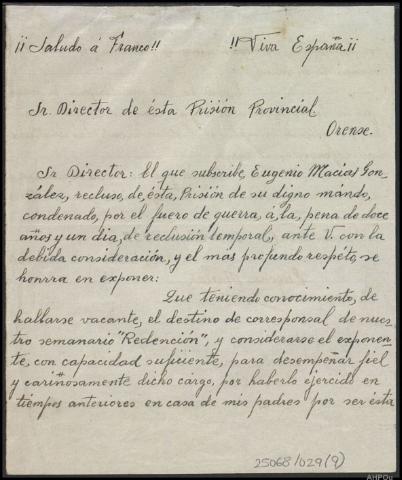 ¡¡Saludo á Franco!! !!Viva España¡¡
Sr. Director de ésta Prisión Provincial
Orense.
Sr. Director: El que subscribe, Eugenio Macias Gon-
zález, recluso, de, ésta, Prisión de su digno mándo,
condenado, por el fuero de guerra, á, la, pena de doce
años y un dia, de reclusión temporal, ante V. con la
debida consideración, y el mas profundo respéto, se
honrra en exponer:
Que teniendo conocimiento, de
hallarse vacante, el destino de corresponsal de nues-
tro semanario "Redención", y considerarse el exponen-
te, con capacidad sufiiente, para desempeñar fiel
y cariñosamente dicho cargo, por haberlo ejercido en
tiempos anteriores en casa de mis padres por ser ésta
25068/029(9)
AHPOu